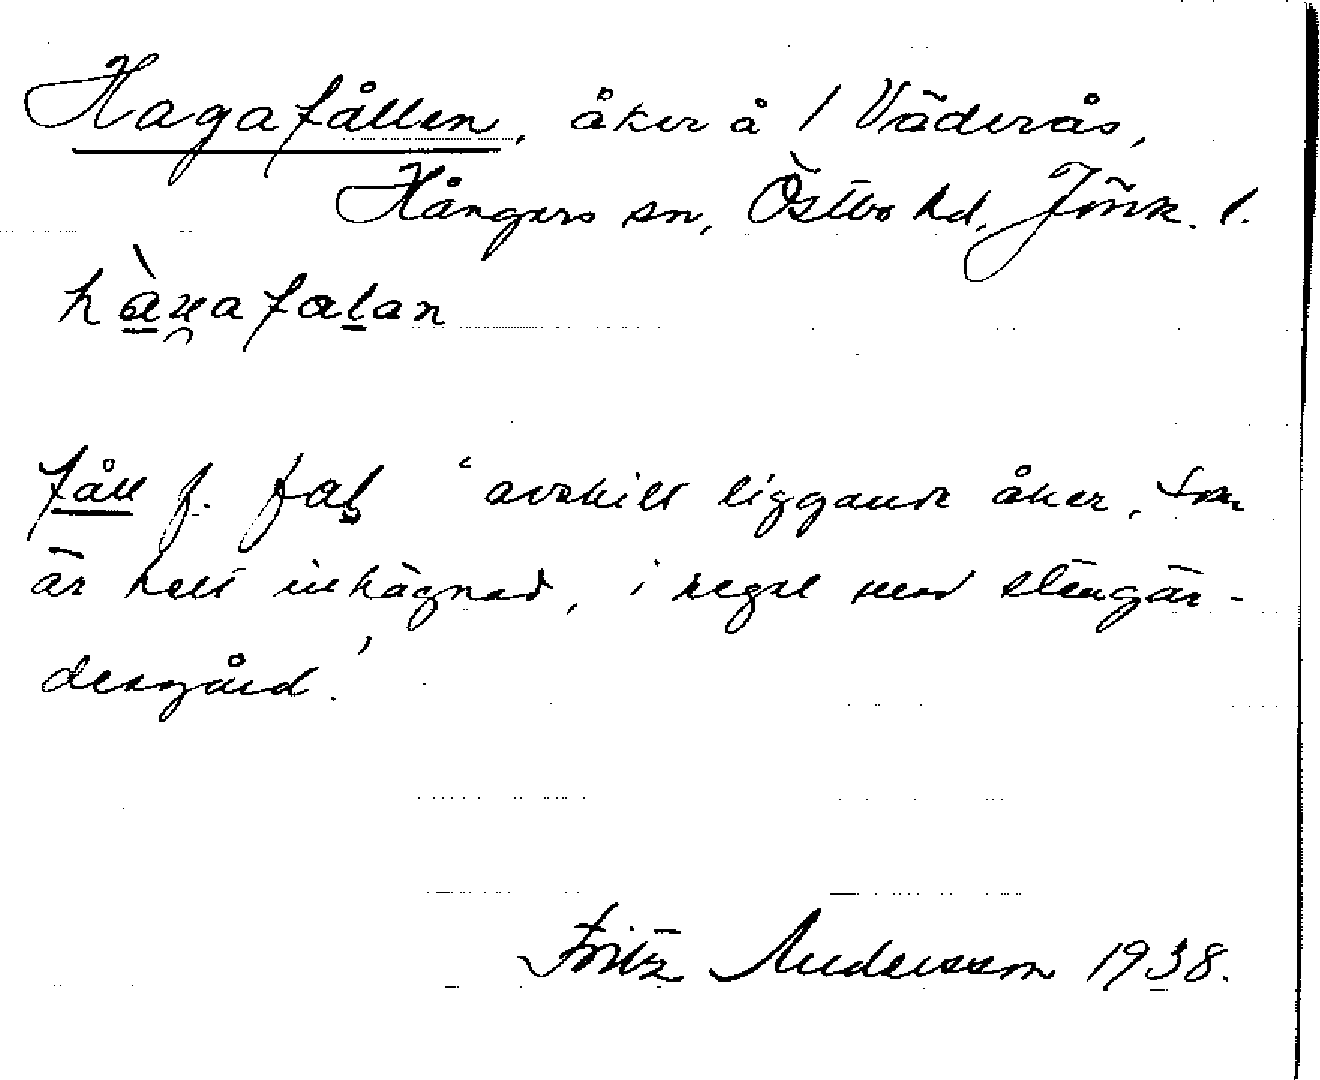 Hagafållen, åker å 1 Väderås,
Hångers sn, Östbo hd, Jönk. l.
fåll f. fal 'avskilt liggande åker, som
är helt inhägnad, i regel med stengär-
desgård.'
Fritz Andersson 1938.